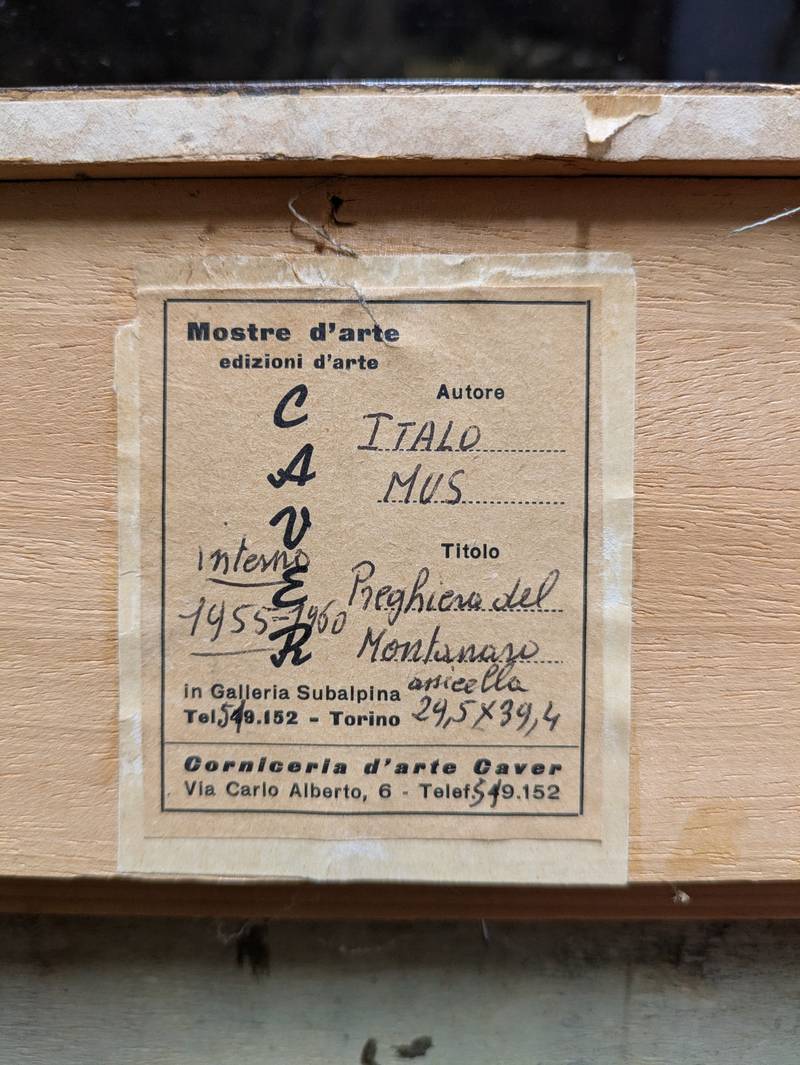 Mostre d'arte
edizioni d'arte
CAVER
Autore
ITALO
MUS
Titolo
Preghiera del
Montanaro
interno
1955-1960
in Galleria Subalpina
Tel. 549.152 - Torino
29,5 X 39,4
Corniceria d'arte Caver
Via Carlo Alberto, 6 - Telef. 549.152